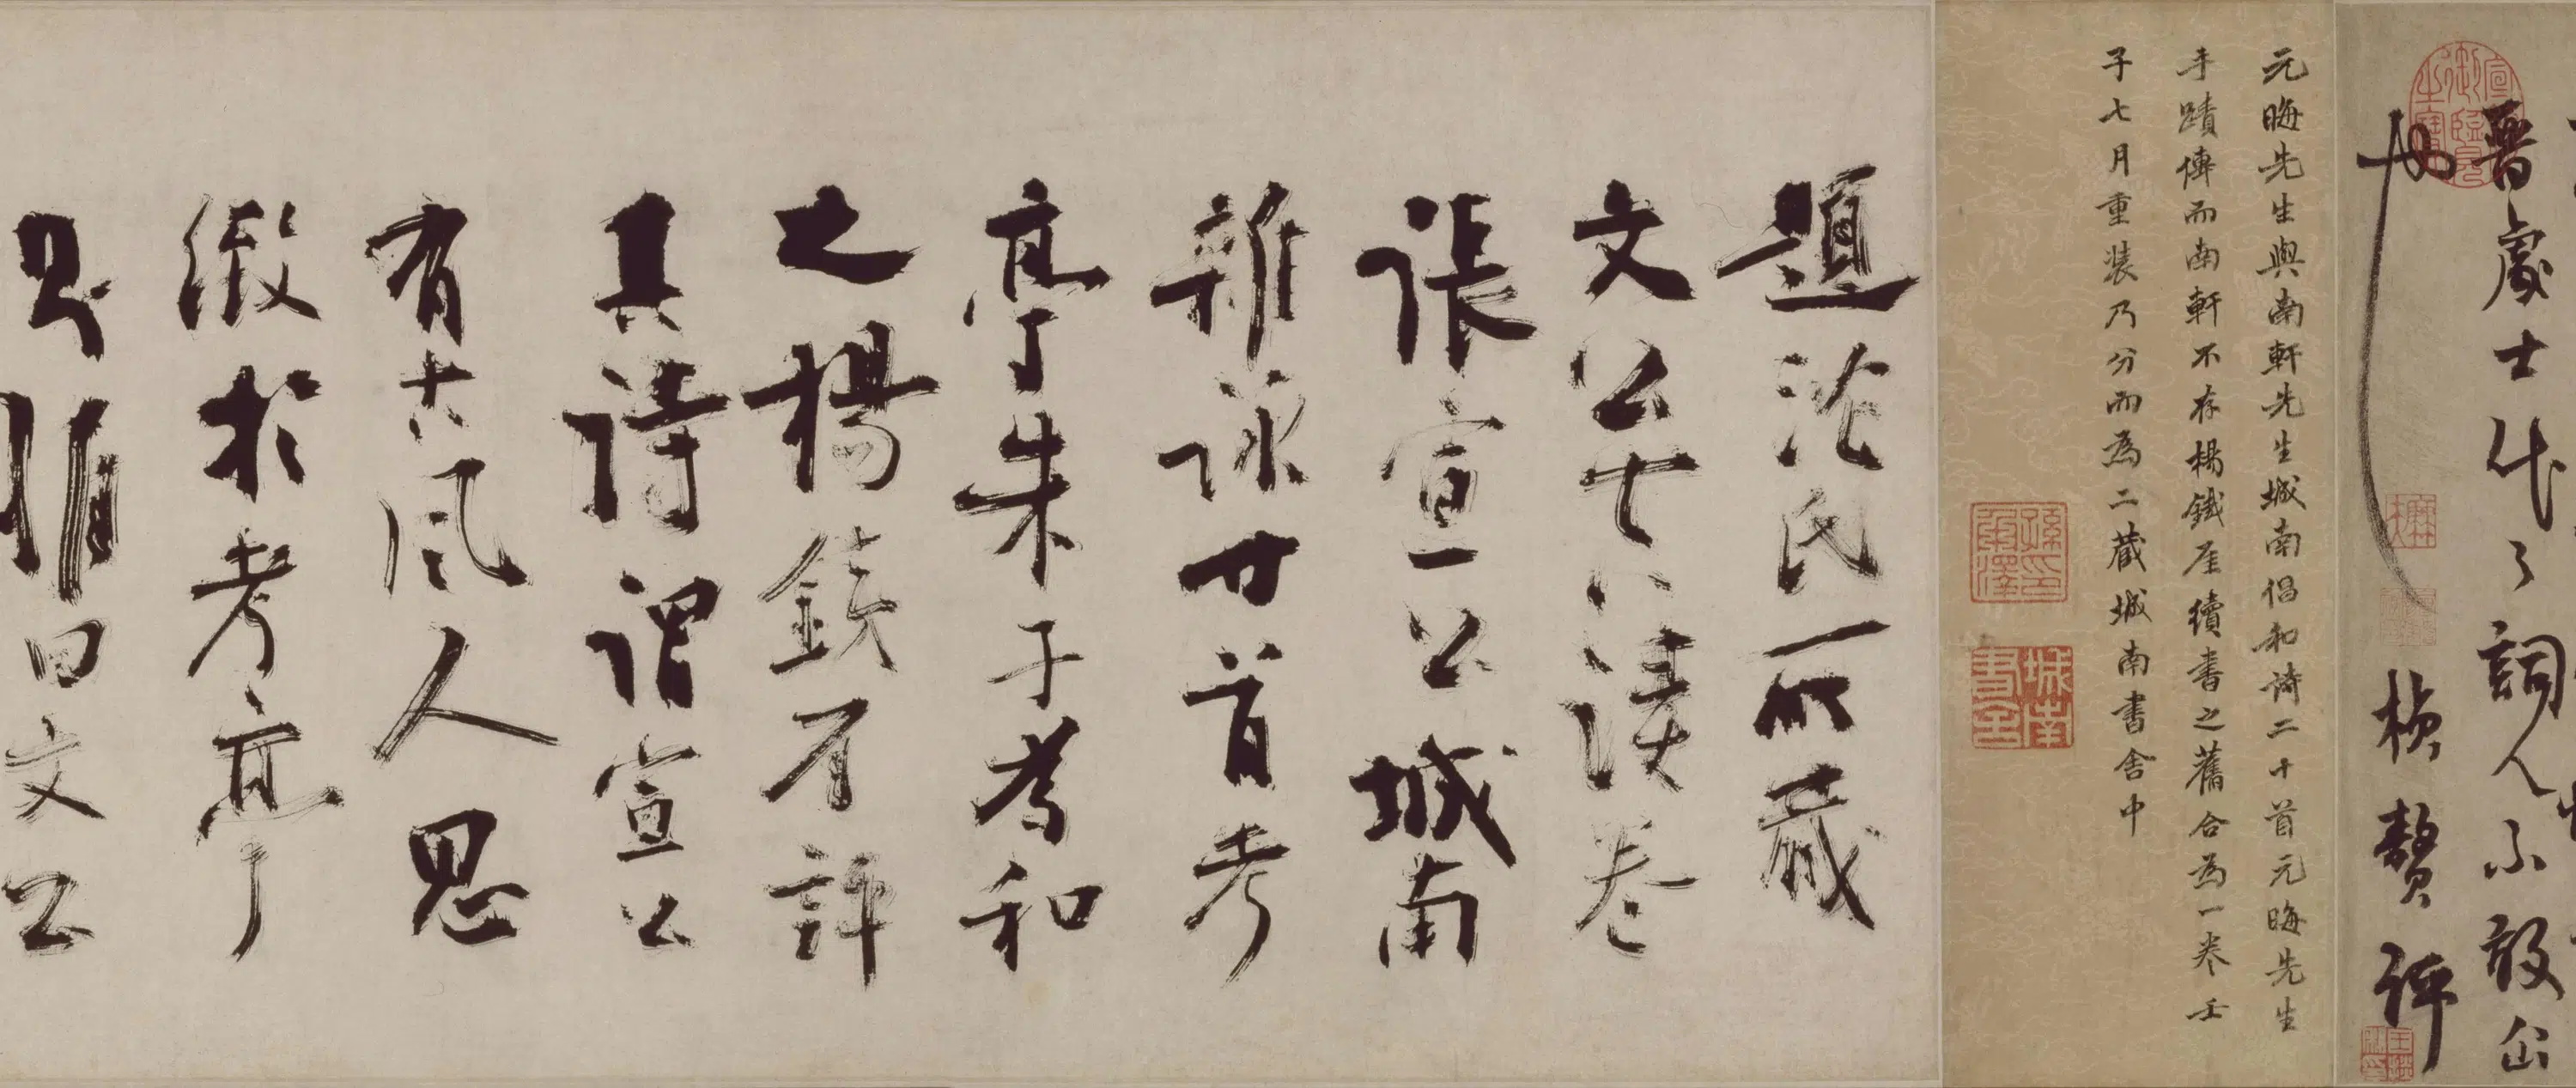 晋處士代之詞人不敢出
也
楨贊評
元晦先生與南軒先生城南倡和詩二十首元晦先生
手蹟傳而南軒不存楊鐵厓續書之舊合為一卷壬
子七月重裝乃分而為二藏城南書舍中
孫承澤印
城南書舍
題沈氏所藏
文公
張宣公城南
雜詠廿首考
亭朱子為和
之楊鐵有評
其詩謂宣公
有古風人思
緻於考亭
則惟曰文公